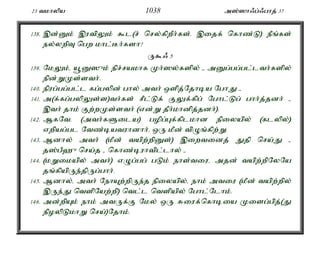 23 வமாலிய 1038 அஸ்ஸாஃப்ஃபாத் 37
138. இன்னும் இரவிலும் கூட(ச் செல்கிறீர்கள். இதைக் கொண்டு) நீங்கள்
நல்லறிவு பெற மாட்டீர்களா!
ருகூஃ 5
139. மேலும், யூனுஸும் நிச்சயமாக முர்ஸல்களில் - அனுப்பப்பட்டவர்களில்
நின்றுமுள்ளவர்.
140. நிரப்பப்பட்ட கப்பலின் பால் அவர் ஒளித்தோடிய போது -
141. அ(க்கப்பலிலுள்ள)வர்கள் சீட்டுக் குலுக்கிப் போட்டுப் பார்த்தனர் -
இவர் தாம் குற்றமுள்ளவர் (என்று தீர்மானித்தனர்).
142. ஆகவே (அவர்களுடைய) பழிப்புக்கிடமான நிலையில் (கடலில்)
எறியப்பட வேண்டியவரானார். ஒரு மீன் விழுங்கிற்று
143. ஆனால் அவர் (மீன் வயிற்றினுள்) இறைவனைத் துதி செய்து -
தஸ்பீஹு செய்த - கொண்டிராவிட்டால் -
144. (மறுமையில் அவர்) எழுப்பப் படும் நாள்வரை, அதன் வயிற்றிலேயே
தங்கியிருந்திருப்பார்.
145. ஆனால், அவர் நோயுற்றிருந்த நிலையில், நாம் அவரை (மீன் வயிற்றில்
இருந்து வெளியேற்றி) வெட்ட வெளியில் போட்டோம்.
146. அன்றியும் நாம் அவருக்கு மேல் ஒரு சுரைக்கொடியை முளைப்பித்(து
நிழலிடுமாறு செய்)தோம்.